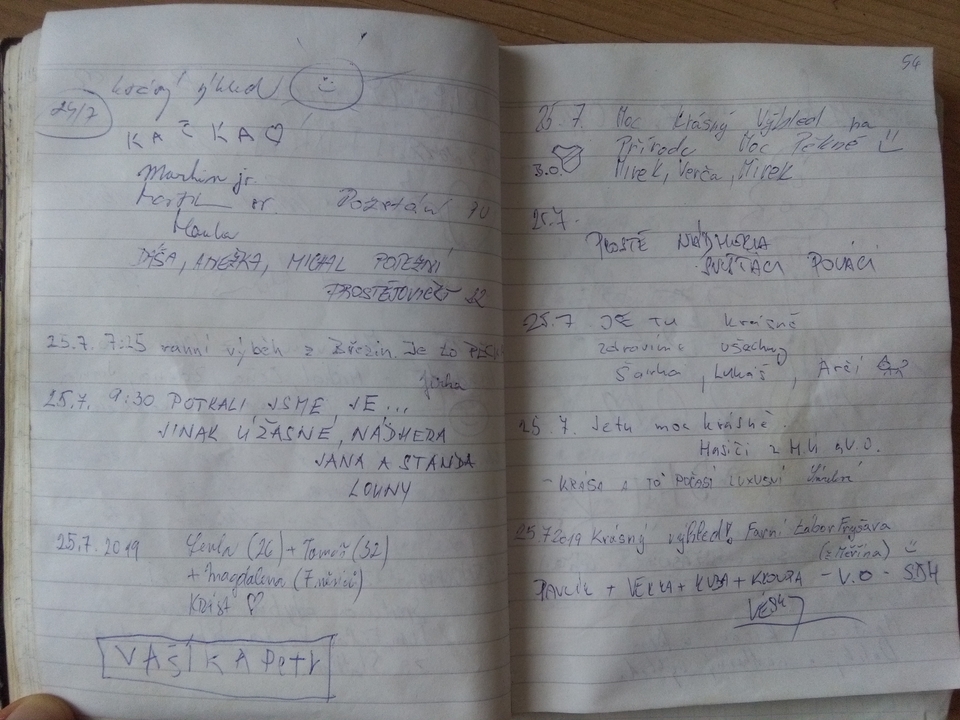 24/7
KAČKA
Martin jr.
sr.
Hanka
DÁŠA, ANEŽKA, MICHAL
25.7. 7:25 ranní výběh z Březin. Je to
Jirka
25.7. 9:30 POTKALI JSME JE...
JINAK ÚŽASNÉ, NÁDHERA
JANA A STANDA
LOUNY
25.7.2019 Lenka (26) + Tomáš (32)
+ Magdalena (7 měsíců)
VAŠÍK A Petr
54
25.7. Moc Krásný Výhled na
Přírodu Moc Pěkné
B.O. Mirek, Verča, Mirek
25.7.
PROSTĚ NÁDHERA
SVIŠŤÁCI POVÁCÍ
25.7 JE TU krásně
zdravíme všechny
Šárka, Lukáš, Arči
25.7. Je tu moc krásně.
Hasiči z M.U. a V.O.
- KRÁSA A TO POČASÍ LUXUSNÍ
25.7.2019 Krásný výhled, Farní tábor Fryšava
(z Měřína)
PAVLÍK + VERKA + KUBA + KROUPA - V.O - SDH